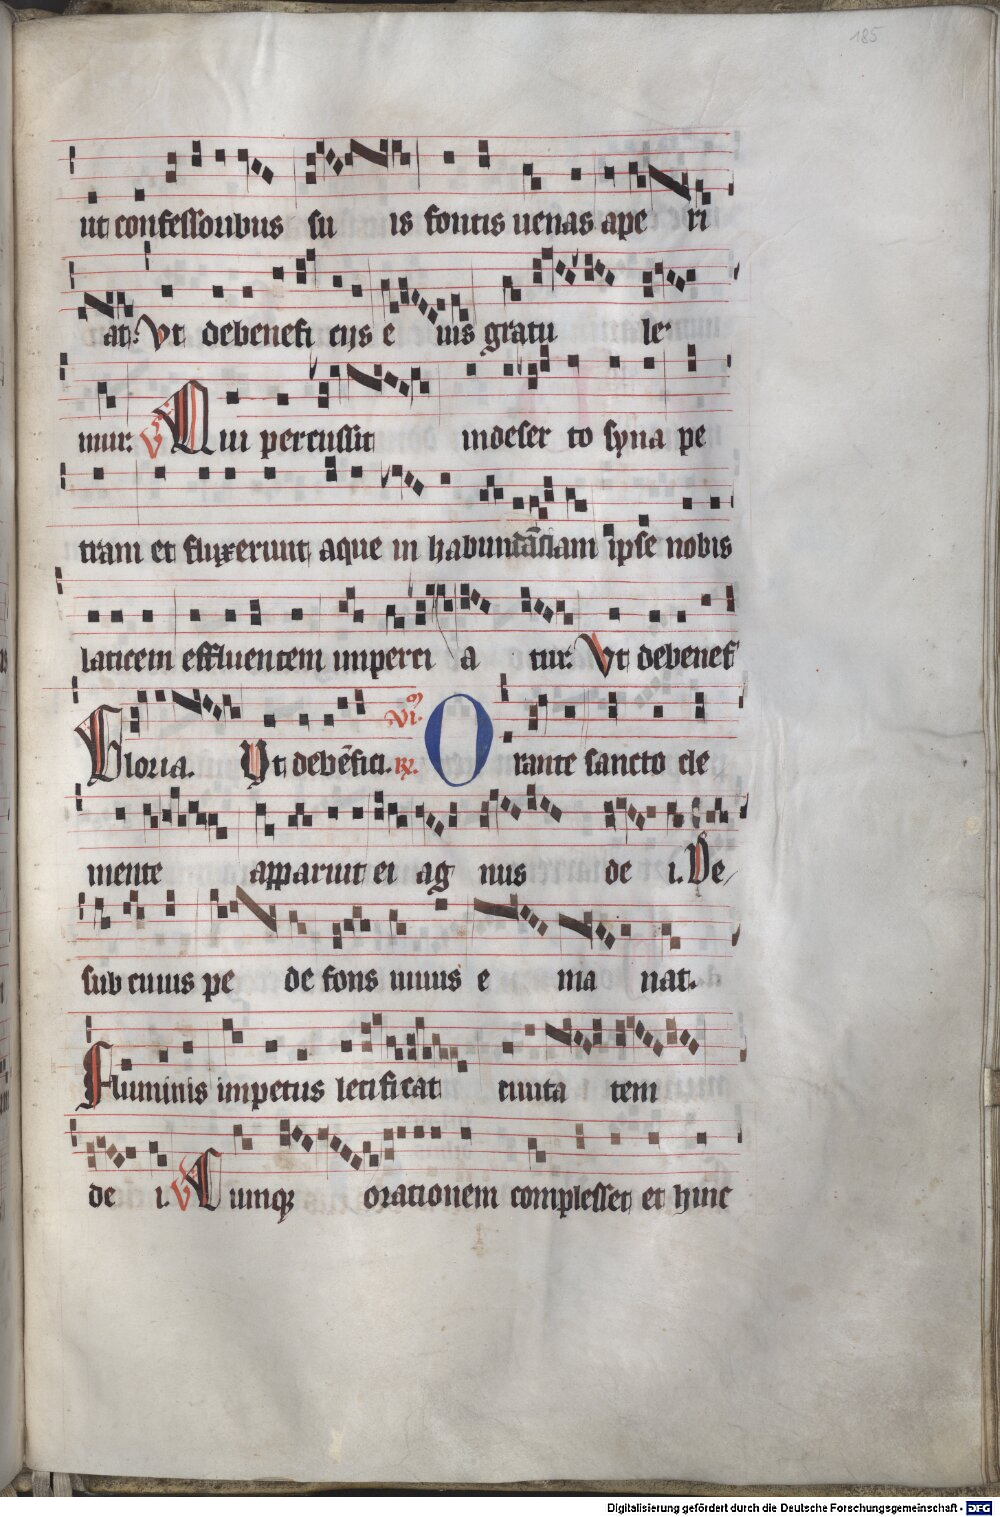 185
ut confessoribus su is fontis uenas ape ri
at. Vt debenefi cijs e ius gratu le
mur. V Qui percussit indeser to syna pe
tram et fluxerunt aque in habundãciam ipse nobis
laticem effluentem imperci a tur. Vt debenef
Gloria. Vt debẽfici. VI. R. Orante sancto cle
mente apparuit ei ag nus de i. De
sub cuius pe de fons uiuus e ma nat.
Fluminis impetus letificat ciuita tem
de i. V Cumq orationem complesset et hinc
Digitalisierung gefördert durch die Deutsche Forschungsgemeinschaft - DFG